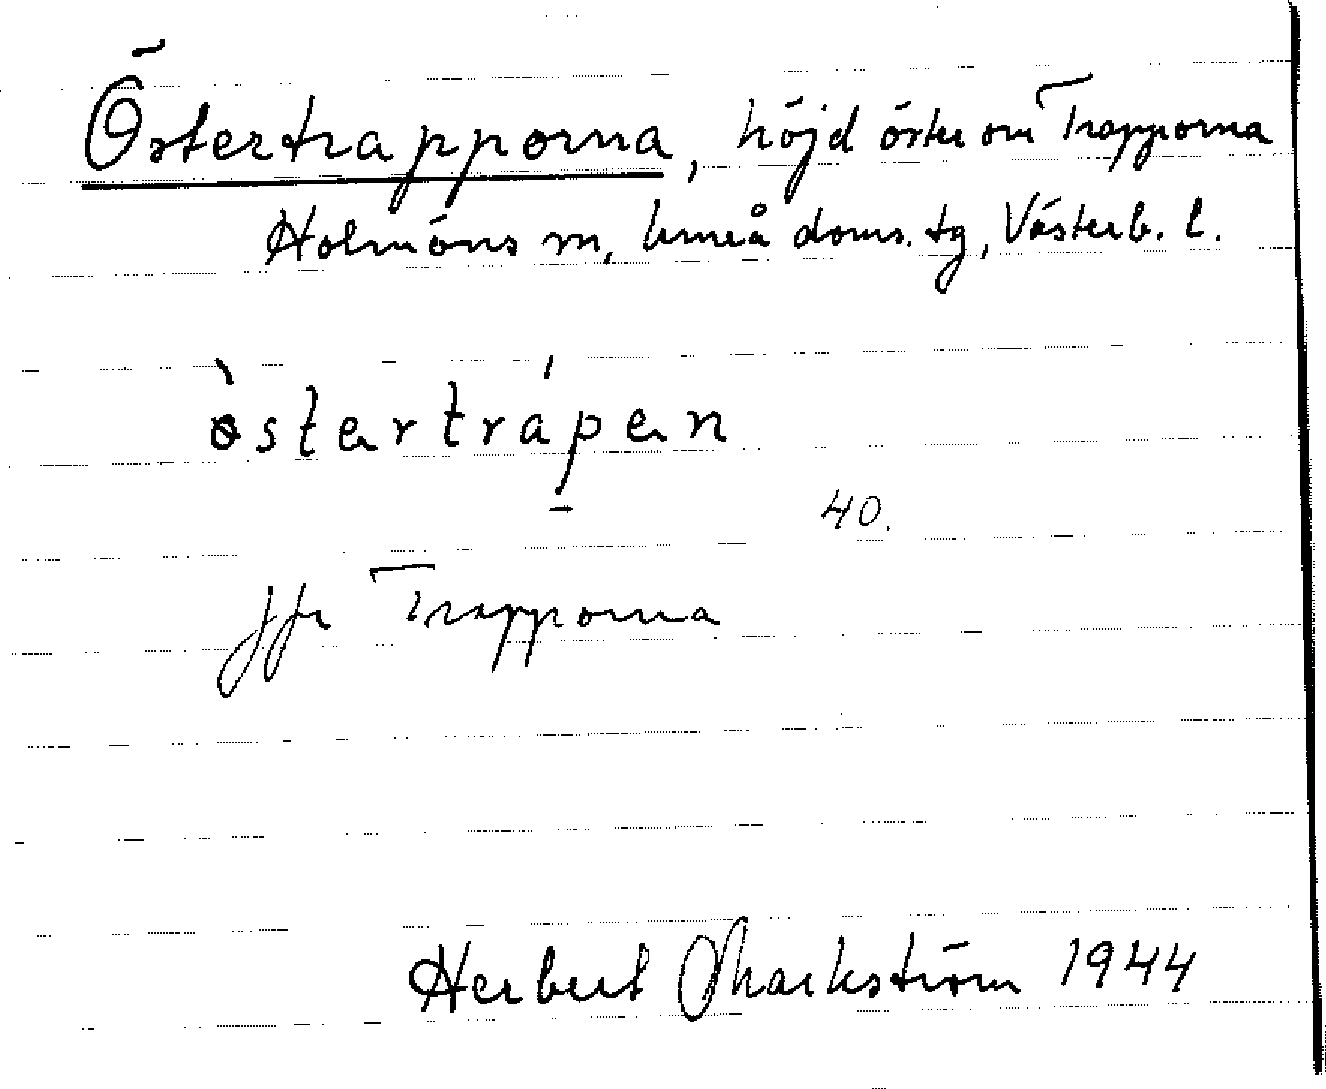 Östertrapporna, höjd öster om Trapporna
Holmöns sn, Umeå doms. tg, Västerb. l.
òstertrápen
40.
Jfr Trapporna
Herbert Markström 1944